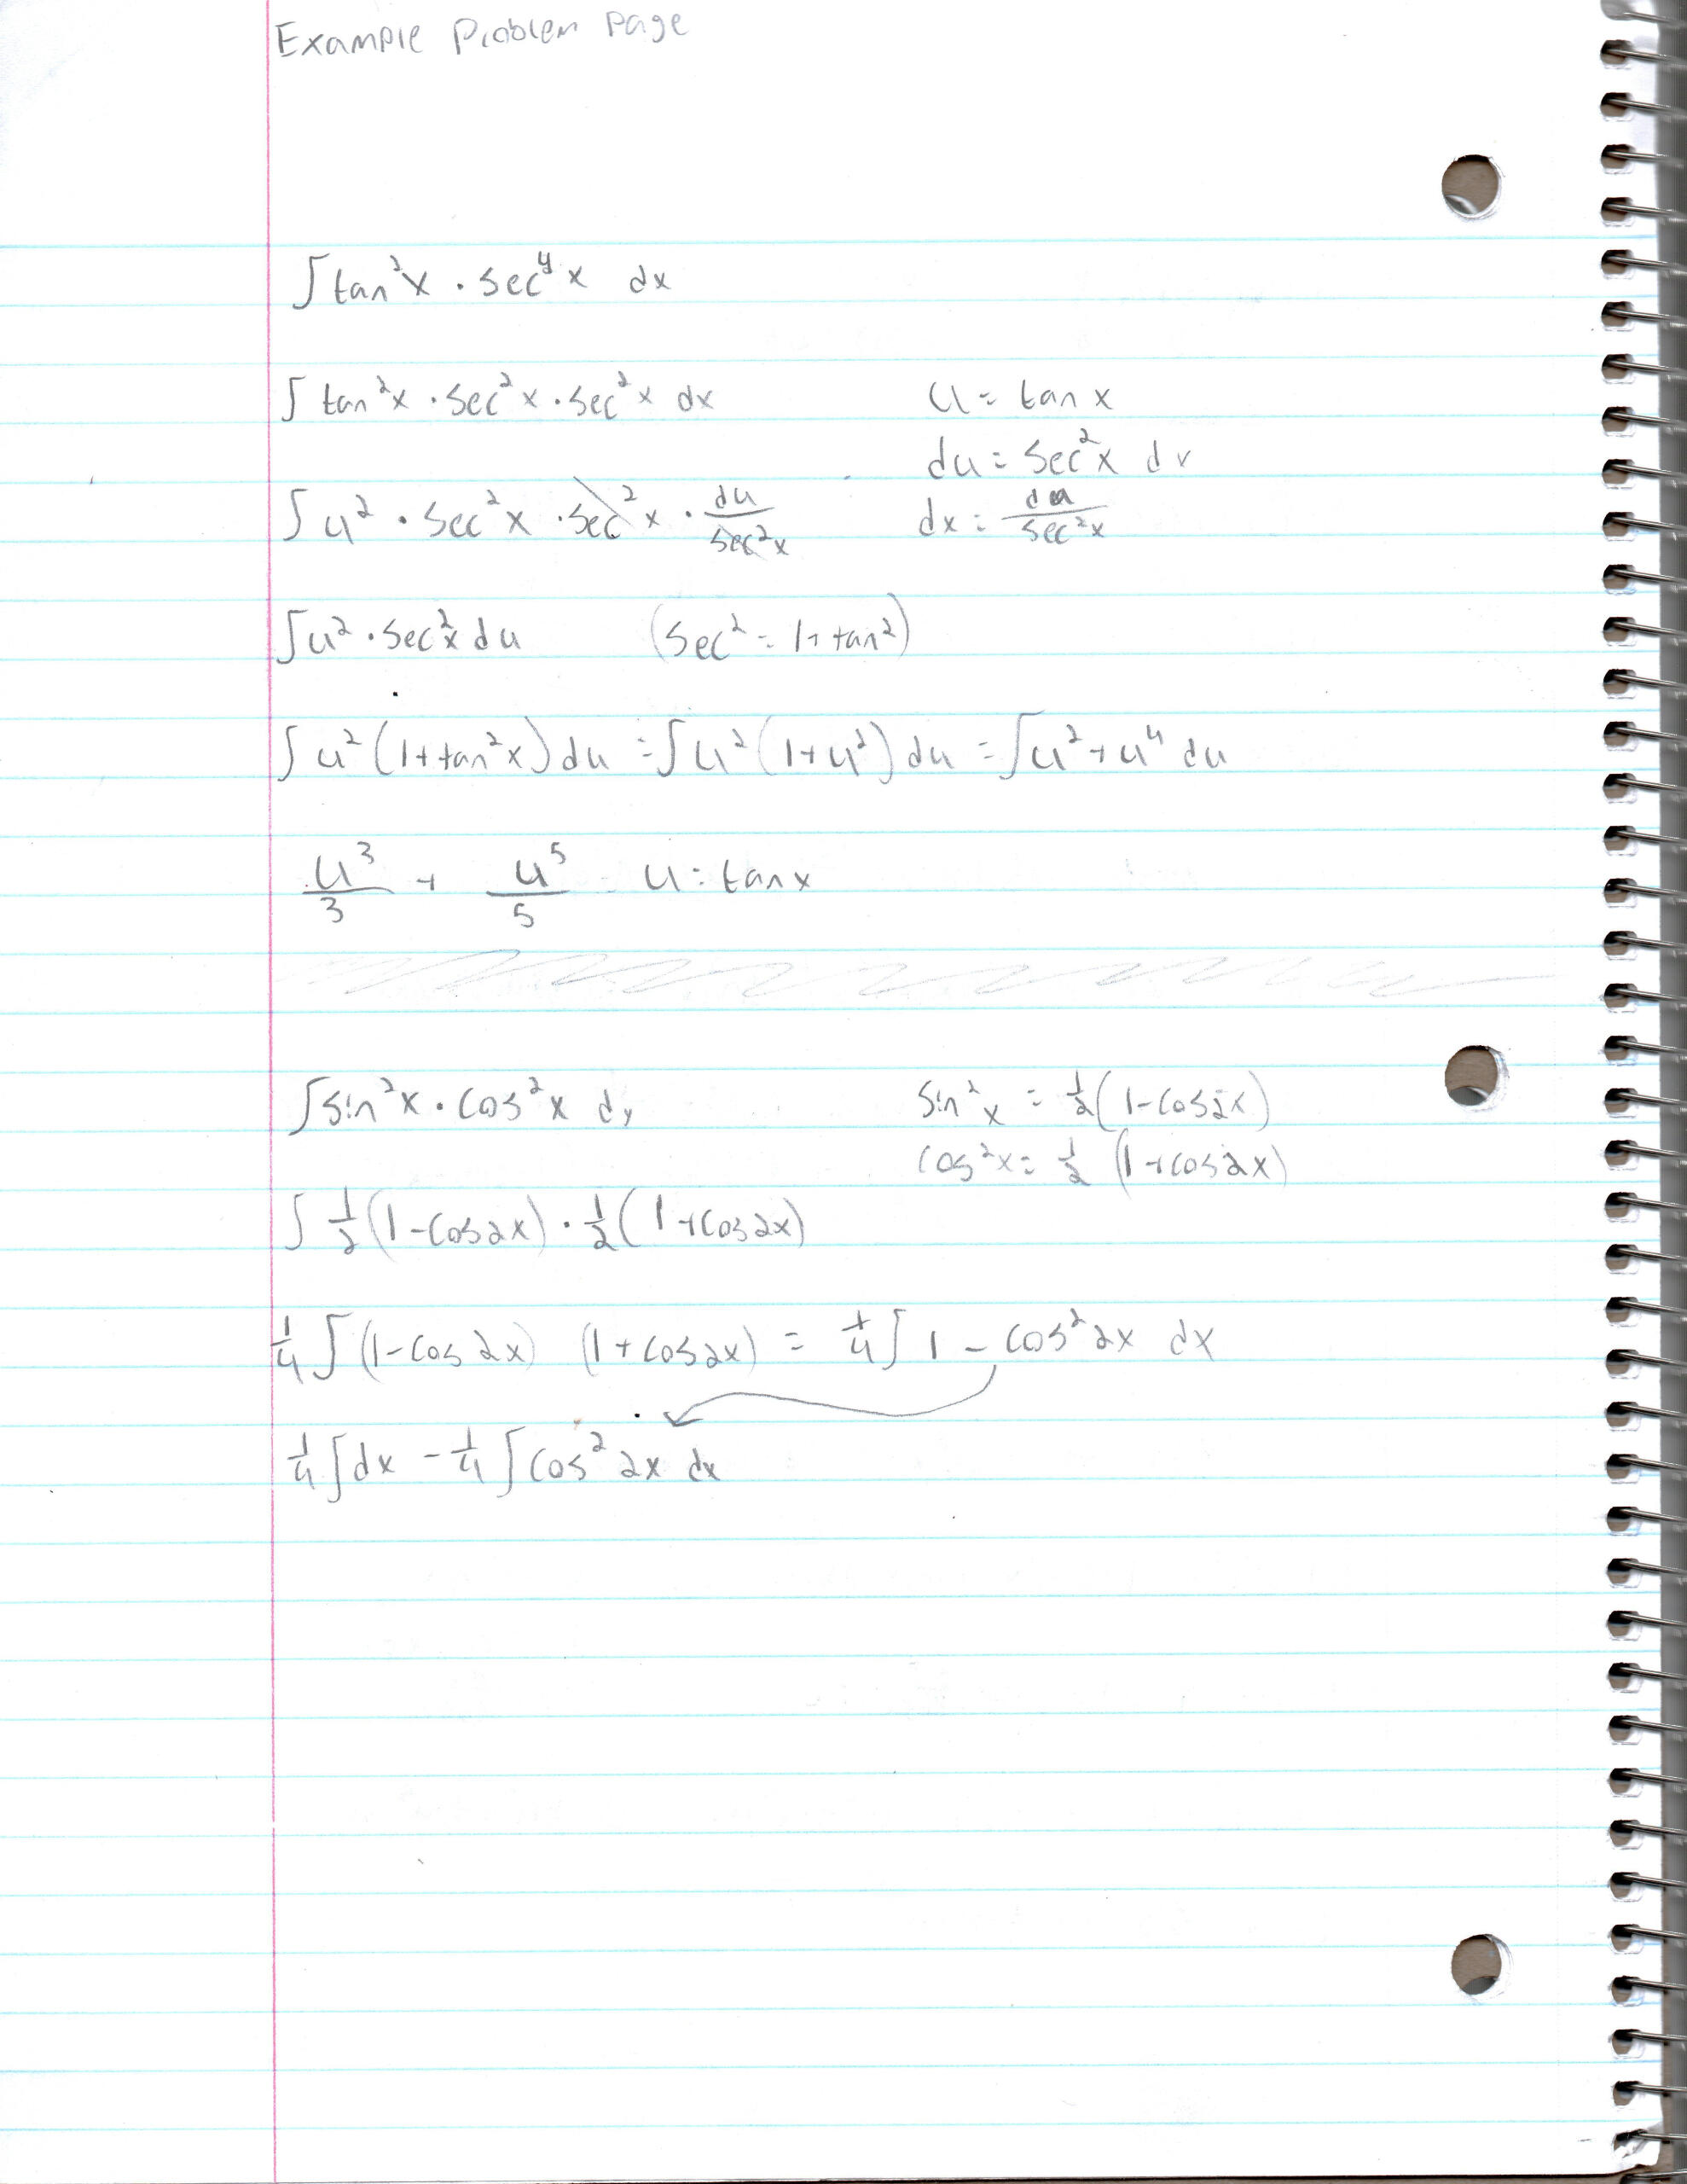 Example Problem Page
∫tan²x · sec⁴x dx
∫ tan²x · sec²x · sec²x dx u = tan x
du = sec²x dx
∫ u² · sec²x · sec²x · du/sec²x dx = du/sec²x
∫u² · sec²x du (sec² = 1+tan²)
∫ u²(1+tan²x)du = ∫u²(1+u²)du = ∫u²+u⁴ du
u³/3 + u⁵/5 u = tanx
∫sin²x · cos²x dx sin²x = 1/2(1-cos2x)
cos²x = 1/2 (1+cos2x)
∫ 1/2(1-cos2x) · 1/2(1+cos2x)
1/4 ∫(1-cos2x) (1+cos2x) = 1/4∫ 1 - cos²2x dx
1/4∫dx - 1/4∫cos²2x dx